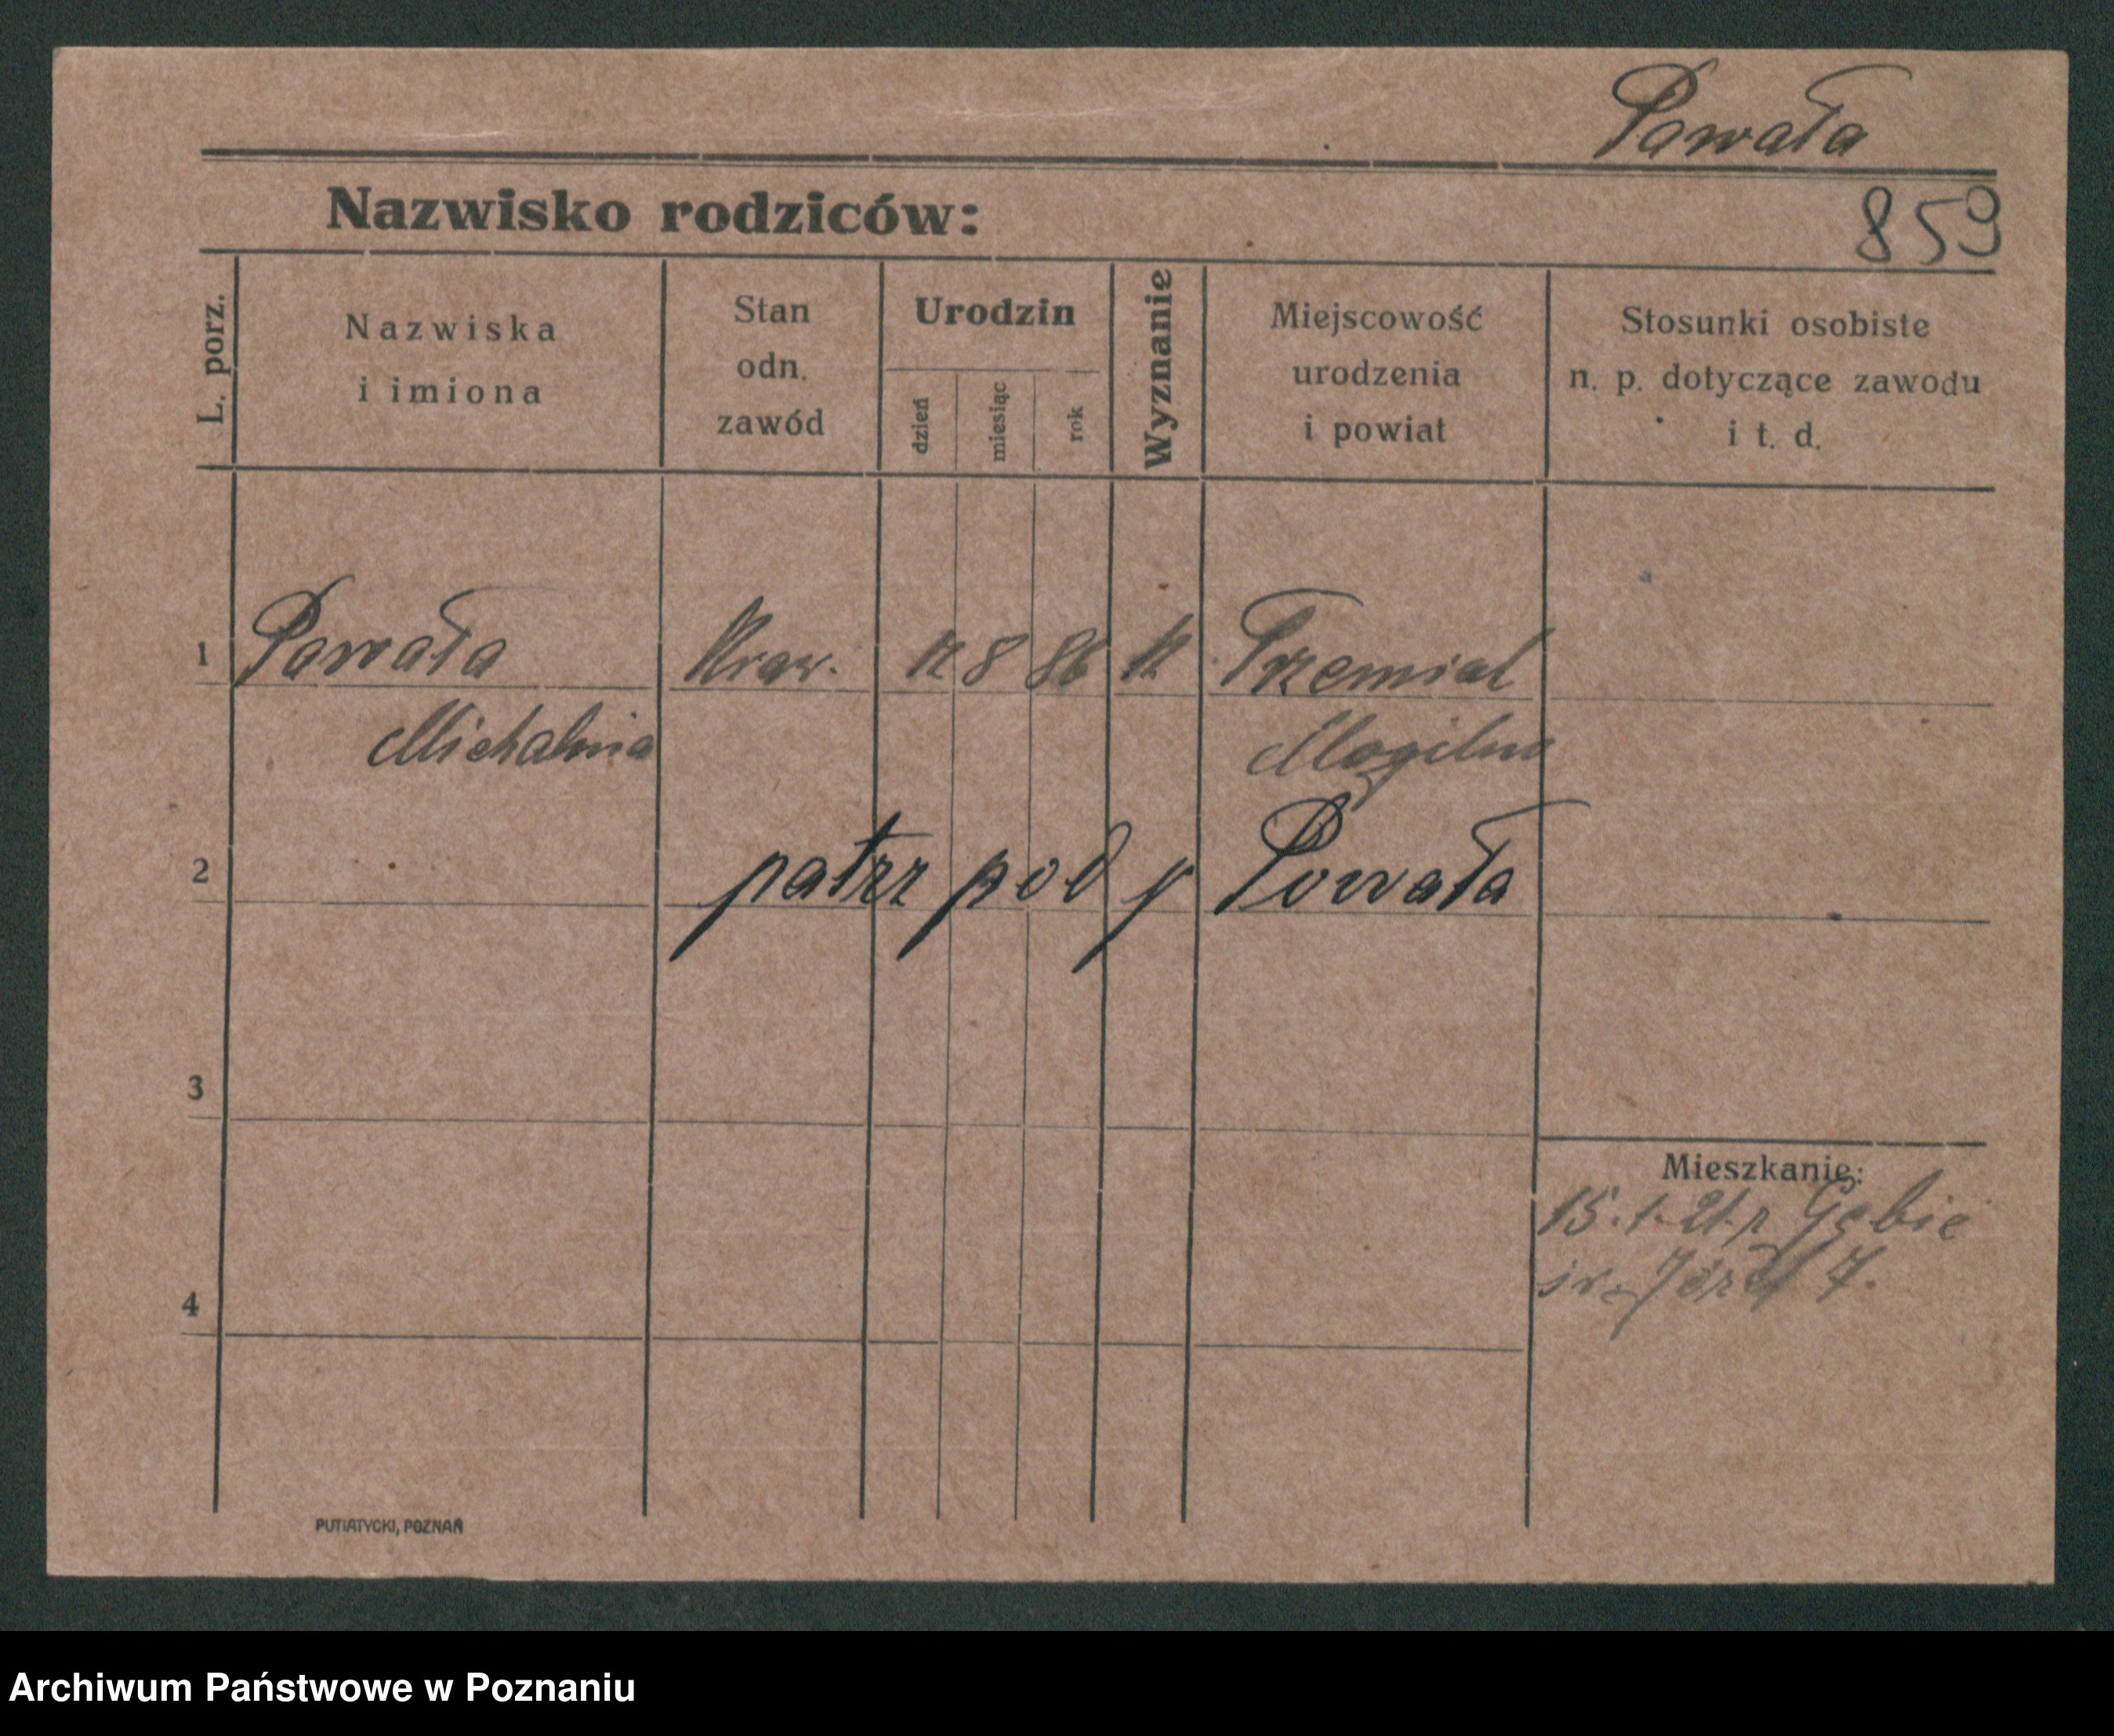 Pawała
Nazwisko rodziców:
859
L. porz.
Nazwiska
i imiona
Stan
odn.
zawód
Urodzin
dzień
miesiąc
rok
Wyznanie
Miejscowość
urodzenia
i powiat
Stosunki osobiste
n. p. dotyczące zawodu
i t. d.
1 Pawała Kraw. 8 86 k
Michalina Mogilno
2 patrz pod Powała
3
Mieszkanie:
15.1.21.
4
PUTIATYCKI, POZNAŃ
Archiwum Państwowe w Poznaniu